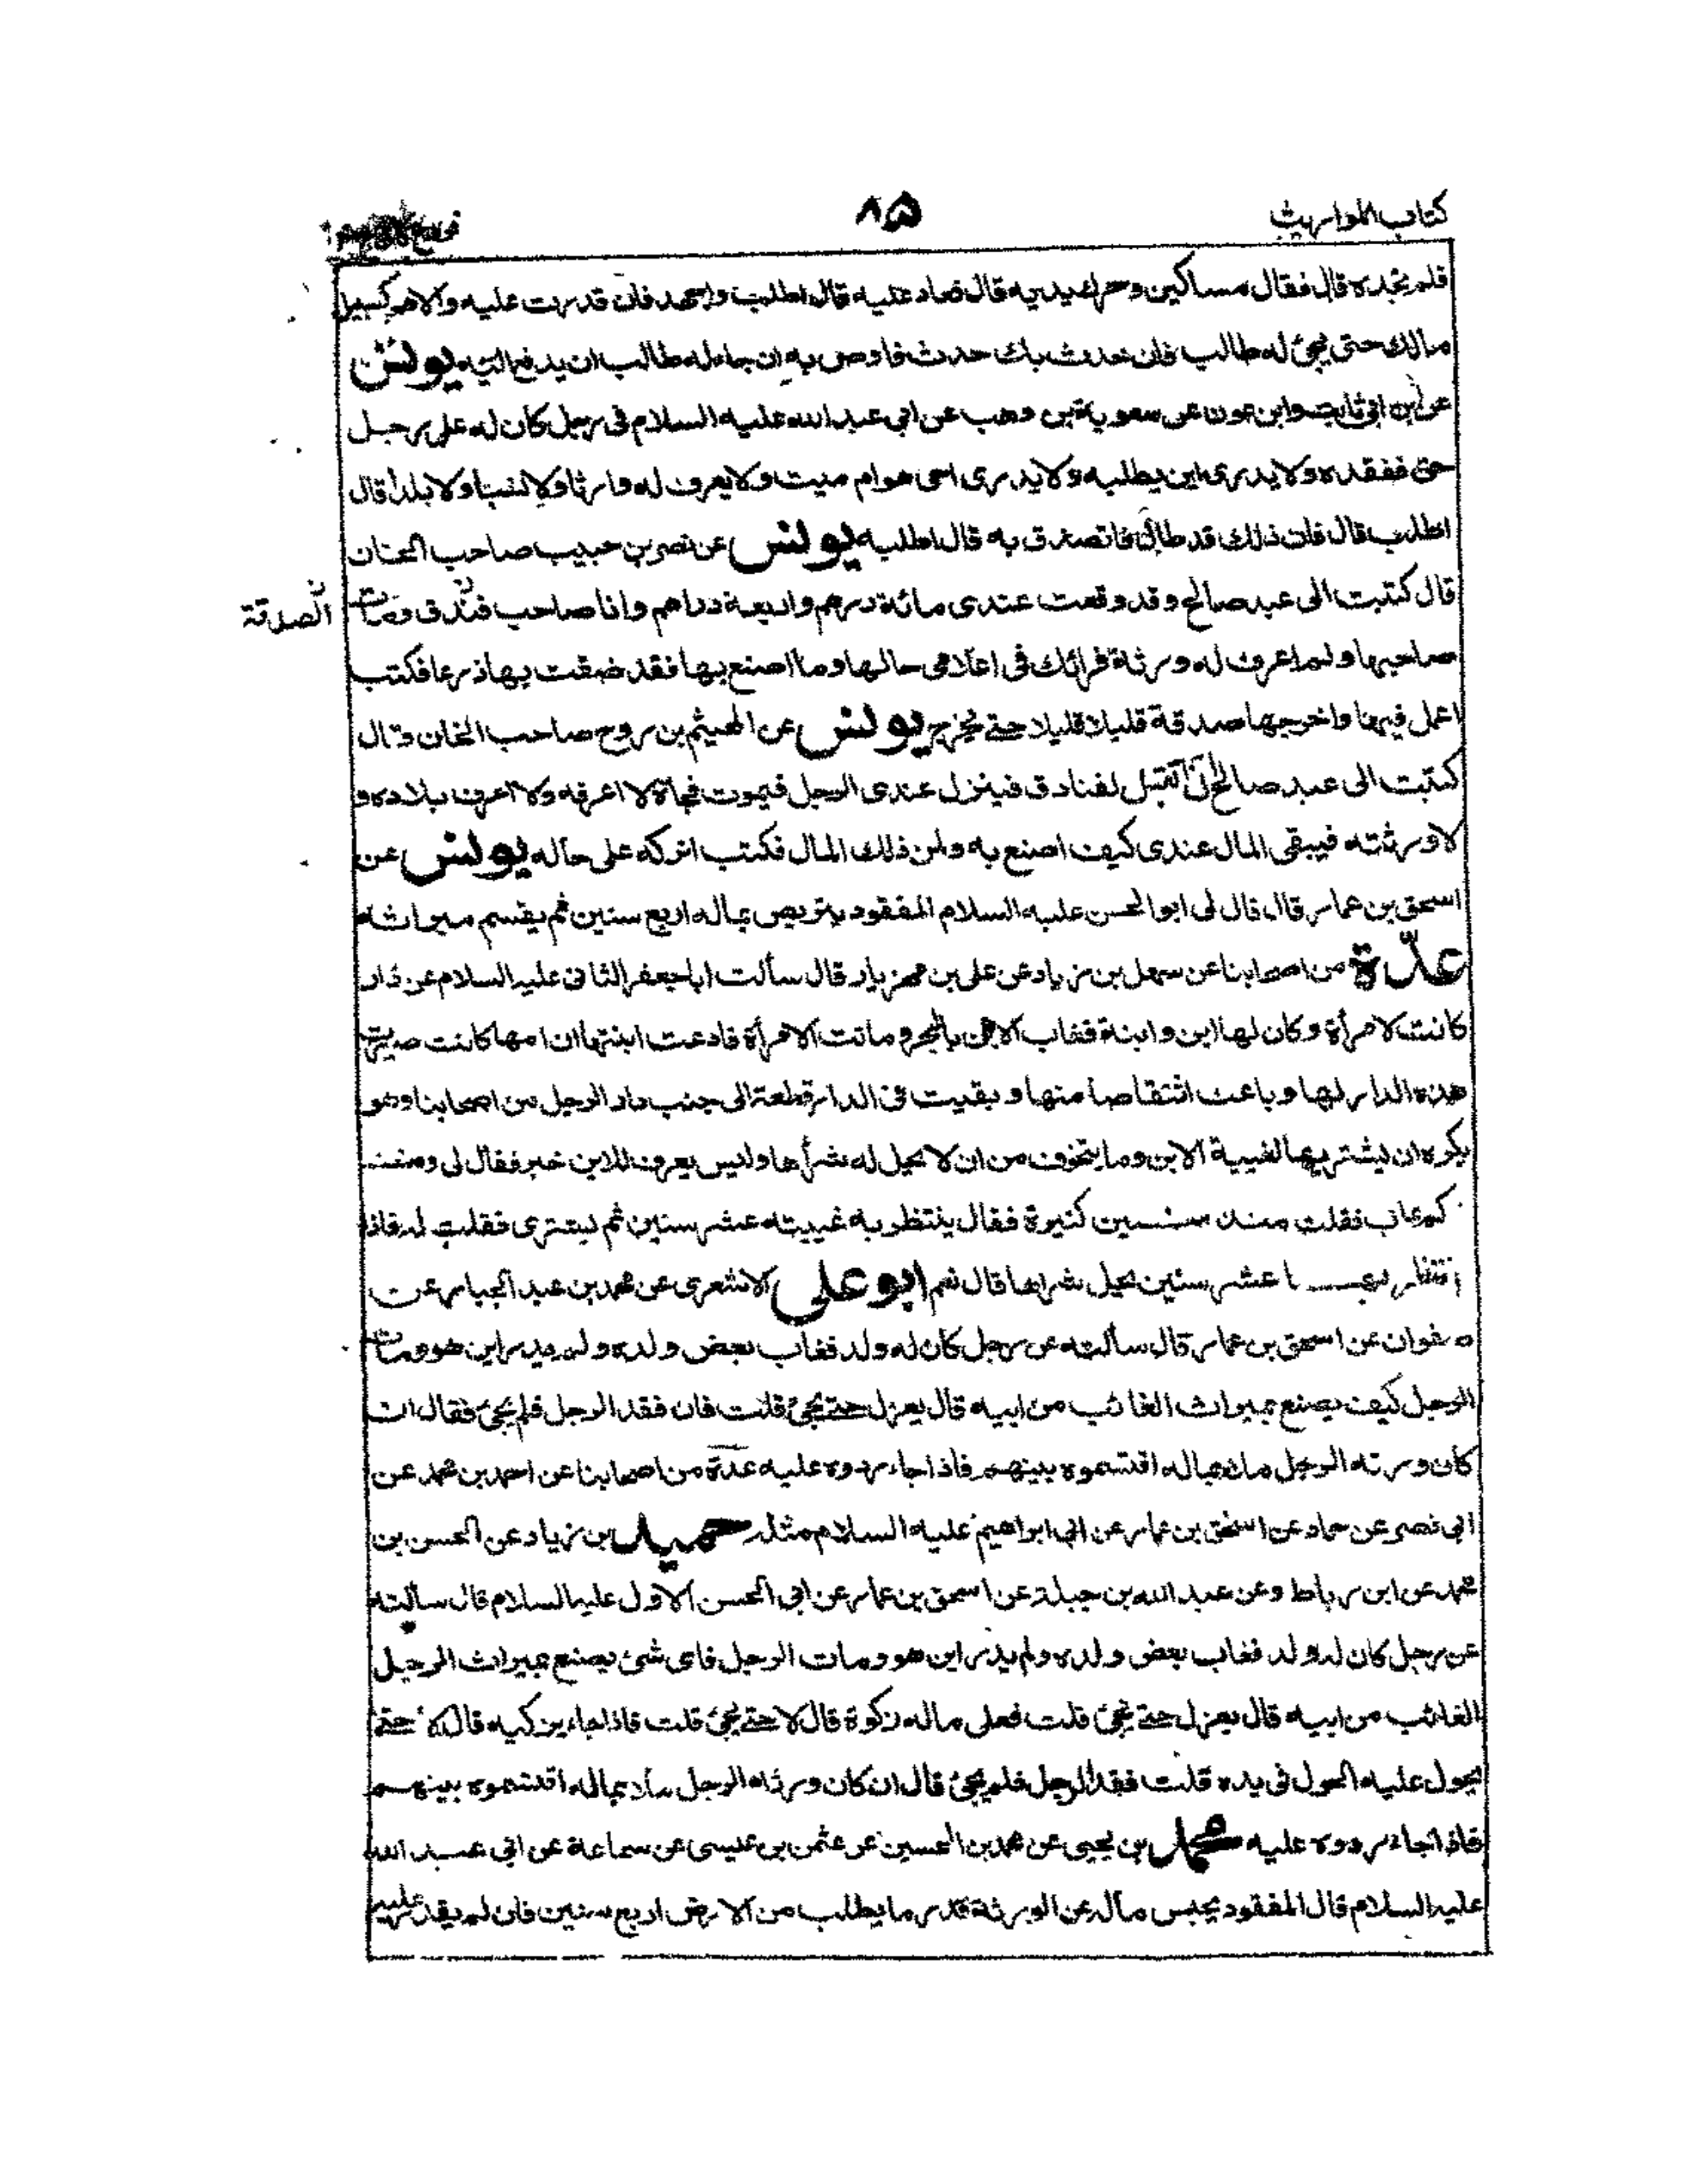 كتاب المواريث
٨٥
فلم نجده قال فقال مساكين وحرك يديه قال فعاد عليه قال اطلب واجهد فان قدرت عليه والا هو كسبيل
مالك حتى يجئ له طالب فان حدث بك حدث فاوص به ان جاء له طالب ان يدفع اليه يونس
عن ابن ابي ثابت وابن عون عن معوية بن وهب عن ابي عبد الله عليه السلام في رجل كان له على رجل
حق ففقده ولا يدرى اين يطلبه ولا يدرى احى هو ام ميت ولا يعرف له وارثا ولا نسبا ولا بلدا قال
اطلب قال فان ذلك قد طال فاتصدق به قال اطلبه يونس عن نصر بن حبيب صاحب الخان
قال كتبت الى عبد صالح وقد وقعت عندى مائة درهم واربعة دراهم وانا صاحب فندق ومات
الصدقة
صاحبها ولم اعرف له ورثة فرائك في اعلامي حالها وما اصنع بها فقد ضقت بها ذرعا فكتب
اعمل فيها واخرجها صدقة قليلا قليلا حتى يخرج يونس عن الهيثم بن روح صاحب الخان قال
كتبت الى عبد صالح انى اتقبل لفنادق فينزل عندى الرجل فيموت فجأة لا اعرفه ولا اعرف بلاده و
لا ورثته فيبقى المال عندى كيف اصنع به ولمن ذلك المال فكتب اتركه على حاله يونس عن
اسحق بن عمار قال قال لى ابو الحسن عليه السلام المفقود يتربص بماله اربع سنين ثم يقسم ميراثه
عدّة من اصحابنا عن سهل بن زياد عن على بن مهزيار قال سألت ابا جعفر الثانى عليه السلام عن دار
كانت لامرأة وكان لها ابن وابنة فغاب الابن بالبحر وماتت الامرأة فادعت ابنتها ان امها كانت صيرتها
هذه الدار لها وباعت اشقاصا منها وبقيت فى الدار قطعة الى جنب دار الرجل من اصحابنا وهو
يكره ان يشتريها لغيبة الابن وما يتخوف من ان لا يحل له شرأها وليس يعرف للابن خبر فقال لى ومنذ
كم غاب فقلت منذ سنين كثيرة فقال ينتظر به غيبته عشر سنين ثم يشترى فقلت له فاذا
انتظر بها عشر سنين يحل شراءها قال نعم ابو على الاشعرى عن محمد بن عبد الجبار عن
صفوان عن اسحق بن عمار قال سألته عن رجل كان له ولد فغاب بعض ولده ولم يدر اين هو ومات
الرجل كيف يصنع بميراث الغائب من ابيه قال يعزل حتى يجئ قلت فان فقد الرجل فلم يجئ فقال ان
كان ورثه الرجل ملاء بماله اقتسموه بينهم فاذا جاء ردوه عليه عدة من اصحابنا عن احمد بن محمد عن
ابى نصر عن حماد عن اسحق بن عمار عن ابى ابراهيم عليه السلام مثله حميد بن زياد عن الحسن بن
محمد عن ابن رباط وعن عبد الله بن جبلة عن اسحق بن عمار عن ابى الحسن الاول عليه السلام قال سألته
عن رجل كان له ولد فغاب بعض ولده ولم يدر اين هو ومات الرجل فاى شئ يصنع بميراث الرجل
الغائب من ابيه قال يعزل حتى يجئ قلت فعلى ماله زكوة قال لا حتى يجئ قلت فاذا جاء يزكيه قال لا حتى
يحول عليه الحول فى يده قلت فقد الرجل فلم يجئ قال ان كان ورثة الرجل ملاء بماله اقتسموه بينهم
فاذا جاء ردوه عليه محمد بن يحيى عن محمد بن الحسين عن عثمن بن عيسى عن سماعة عن ابى عبد الله
عليه السلام قال المفقود يحبس ماله عن الورثة قدر ما يطلب من الارض اربع سنين فان لم يقدر عليه